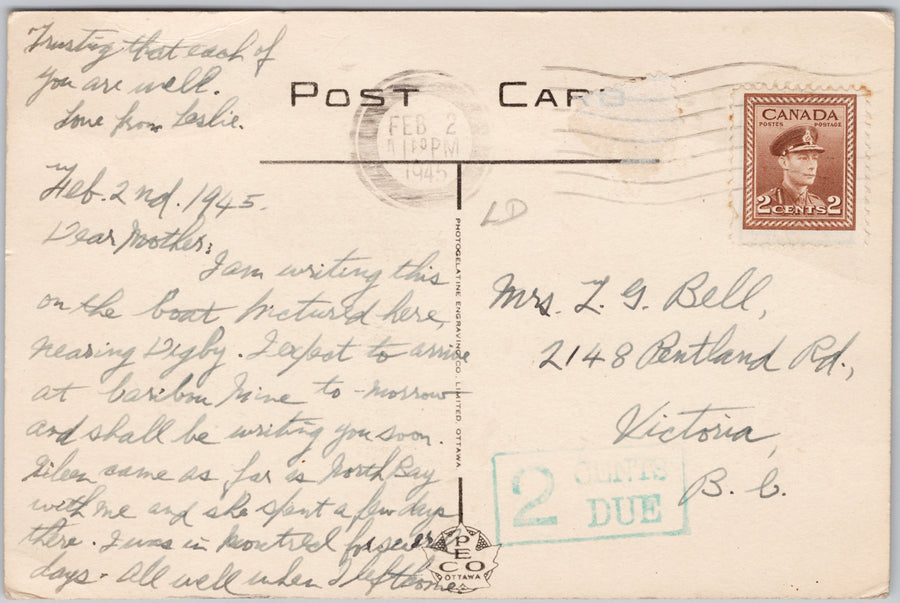 Trusting that each of
you are well.
Love from Leslie.
Feb. 2nd. 1945.
Dear Mother:
I am writing this
on the boat pictured here,
nearing Digby. I expect to arrive
at Caribou Mine to-morrow
and shall be writing you soon.
Eileen came as far as North Bay
with me and she spent a few days
there. I was in Montreal for several
days. All well when I left home.
POST CARD
FEB 2
PM
1945
LD
CANADA
POSTES POSTAGE
2 CENTS 2
Mrs. L. G. Bell,
2148 Pentland Rd.,
Victoria,
B. C.
2 CENTS
DUE
PHOTOGELATINE ENGRAVING CO. LIMITED. OTTAWA
PECO
OTTAWA